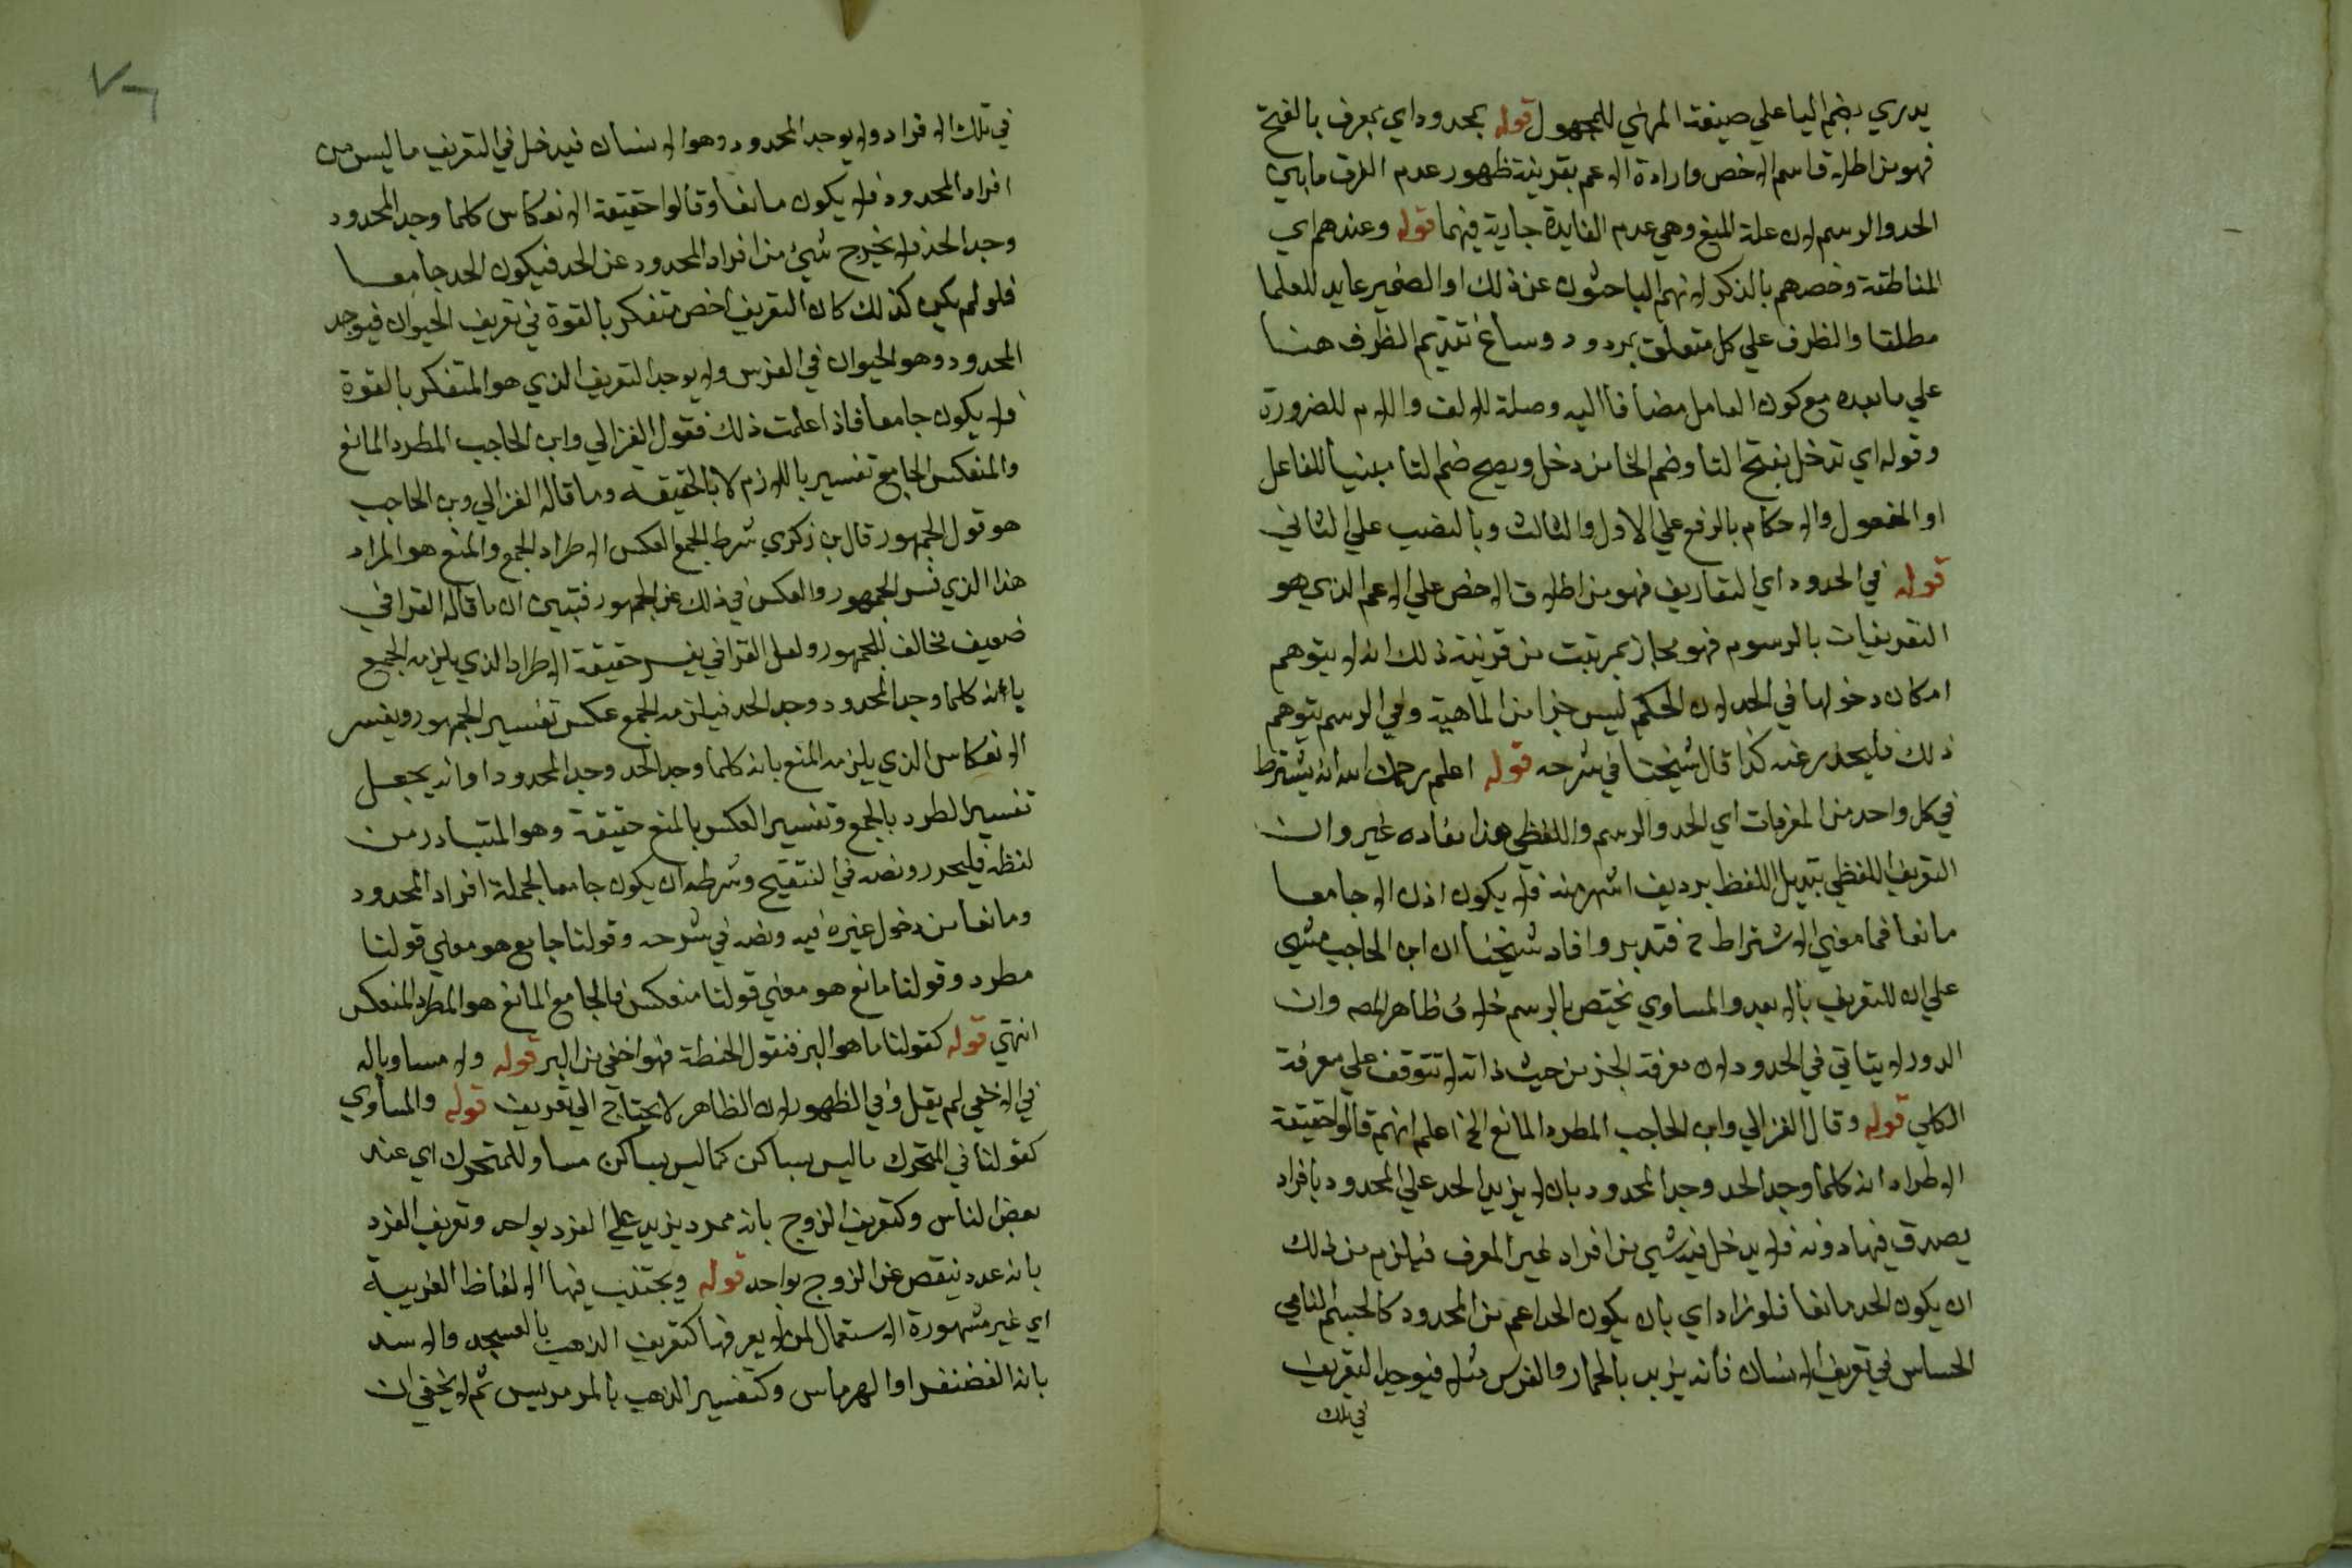 يدري بضم اليا علي صيغة المهني للمجهول قوله بمحدود اي بمعرف بالفتح
فهو من اطلاق اسم الاخص وارادة الاعم بقرينة ظهور عدم الفرق ما بين
الحد والرسم لان علة المنع وهي عدم الفايدة جارية فيهما قوله وعندهم اي
المناطقة وخصهم بالذكر لانهم الباحثون عن ذلك او الضمير عايد للعلما
مطلقا والظرف علي كل متعلق بمردود وساغ تقديم الظرف هنا
علي ما بعده مع كون العامل مضافا اليه وصلة للالف واللام للضرورة
وقوله اي تدخل بفتح التا وضم الخا من دخل ويصح ضم التا مبنيا للفاعل
او المفعول والاحكام بالرفع علي الاول والثالث وبالنصب علي الثاني
قوله في الحدود اي التعاريف فهو من اطلاق الاخص علي الاعم الذي هو
التعريفات بالرسوم فهو مجاز بمرتبت من قرينة ذلك انه لا يتوهم
امكان دخولها في الحد لان الحكم ليس جزا من الماهية وفي الرسم يتوهم
ذلك فليحذر عنه كذا قال شيخنا في شرحه قوله اعلم رحمك الله انه يشترط
في كل واحد من المعرفات اي الحد والرسم واللفظي هذا مفاده غير وان
التعريف اللفظي تبديل اللفظ برديف اشهر منه فلا يكون اذن الا جامعا
مانعا فما معني الاشتراط ح فتدبر وافاد شيخنا ان ابن الحاجب مشي
علي ان للتعريف بالابعد والمساوي يختص بالرسم خلاف ظاهر المصه وان
الدور لا يتاتي في الحدود لان معرفة الجز من حيث ذاته لا تتوقف علي معرفة
الكلي قوله وقال الغزالي وابن الحاجب المطرد المانع الخ اعلم انهم قالوا حقيقة
الاطراد انه كلما وجد الحد وجد المحدود بان لا يزيد الحد علي المحدود بافراد
يصدق فيها دونه فلا يدخل فيه شي من افراد غير المعرف فيلزم من ذلك
ان يكون الحد مانعا فلو زاد اي بان يكون الحد اعم من المحدود كالجسم النامي
الحساس في تعريف الانسان فانه يزيد بالحمار والفرس مثلا فيوجد التعريف
في تلك
في تلك الافراد ولا يوجد المحدود وهو الانسان فيدخل في التعريف ما ليس من
افراد المحدود فلا يكون مانعا وقالوا حقيقة الانعكاس كلما وجد المحدود
وجد الحد فلا يخرج شيئ من افراد المحدود عن الحد فيكون الحد جامعا
فلو لم يكن كذلك كان التعريف اخص متفكر بالقوة في تعريف الحيوان فيوجد
المحدود وهو الحيوان في الفرس ولا يوجد التعريف الذي هو المتفكر بالقوة
فلا يكون جامعا فاذا علمت ذلك فقول الغزالي وابن الحاجب المطرد المانع
والمنعكس الجامع تفسير باللازم لا بالحقيقة وما قاله الغزالي وبن الحاجب
هو قول الجمهور قال بن زكري شرط الجمع العكس الاطراد الجمع والمنع هو المراد
هذا الذي نس الجمهور والعكس في ذلك عن الجمهور فتبين ان ما قاله القرافي
ضعيف مخالف للجمهور ولعل القرافي يفسر حقيقة الاطراد الذي يلزمه الجمع
بانه كلما وجد المحدود وجد الحد فيلزمه الجمع عكس تفسير الجمهور ويفسر
الانعكاس الذي يلزمه المنع بانه كلما وجد الحد وجد المحدود او انه يجعل
تفسير الطرد بالجمع وتفسير العكس بالمنع حقيقة وهو المتبادر من
لفظه فليحرر ونصه في التنقيح وشرطه ان يكون جامعا لجملة افراد المحدود
ومانعا من دخول غيره فيه ونصه في شرحه وقولنا جامع هو معني قولنا
مطرد وقولنا مانع هو معني قولنا منعكس فالجامع المانع هو المطرد المنعكس
انتهي قوله كقولنا ما هو البر فنقول الحنطة فهو اخفي من البر قوله ولا مساويا له
في الاخفي لم يقل وفي الظهور لان الظاهر لا يحتاج الي تعريف قوله والمساوي
كقولنا في المتحرك ما ليس بساكن كما ليس بساكن مساو للمتحرك اي عند
بعض الناس وكتعريف الزوج بانه عدد يزيد علي الفرد بواحد وتعريف الفرد
بانه عدد ينقص عن الزوج بواحد قوله ويجتنب فيها الالفاظ الغريبة
اي غير مشهورة الاستعمال لمن لا يعرفها كتعريف الذهب بالعسجد والاسد
بانه الغضنفر او الهرماس وكتفسير الذهب بالمرمريس ثم لا يخفي ان